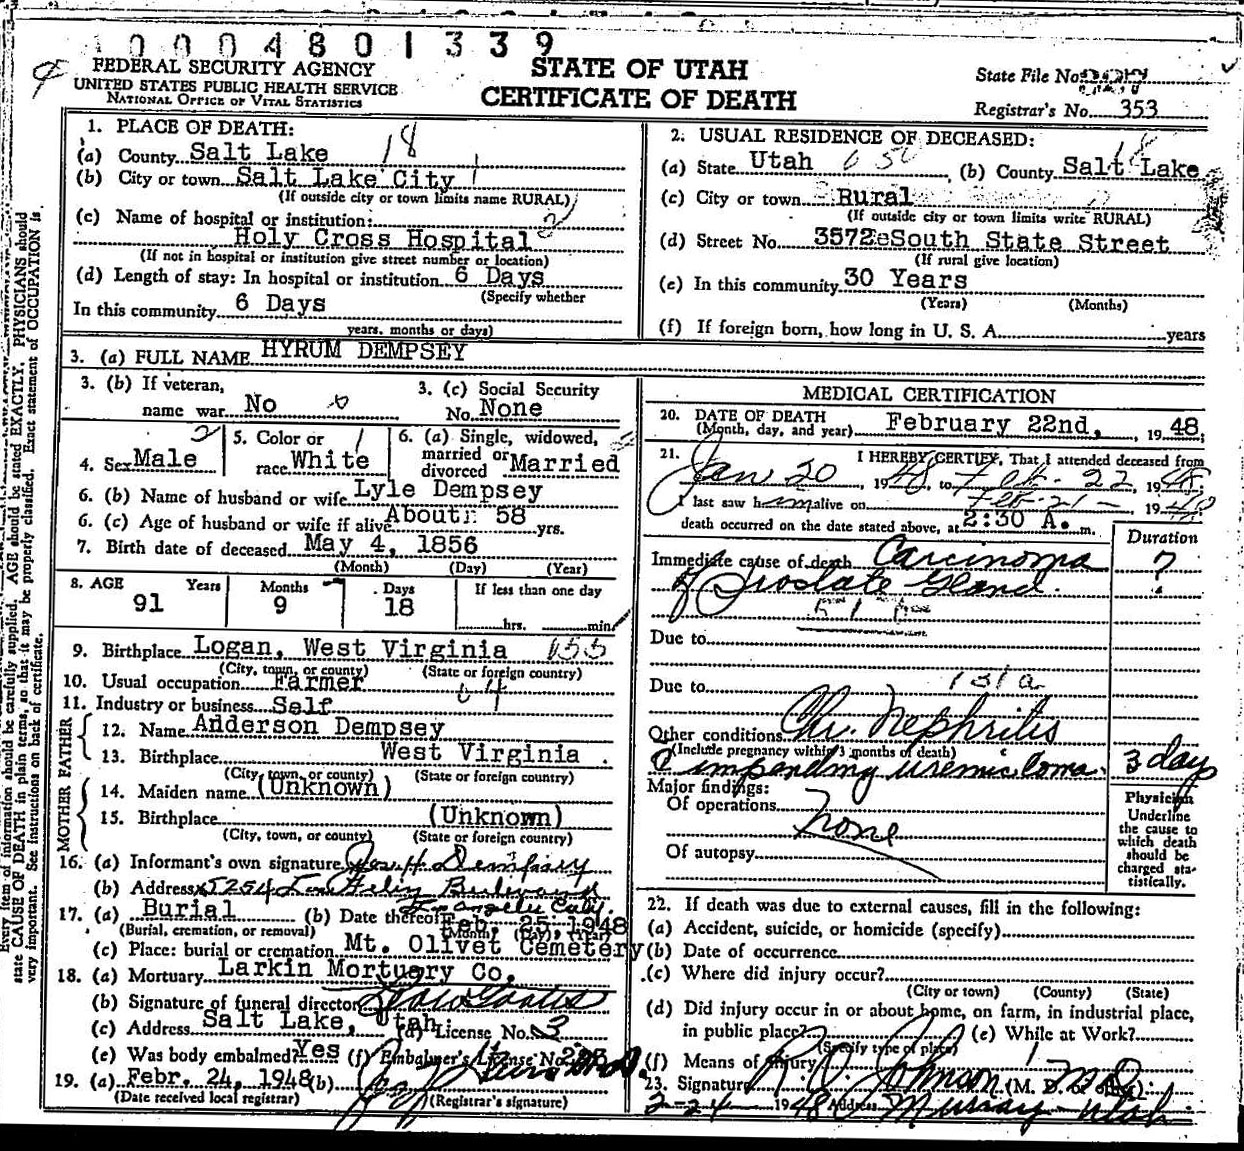 0004801339
FEDERAL SECURITY AGENCY
UNITED STATES PUBLIC HEALTH SERVICE
NATIONAL OFFICE OF VITAL STATISTICS
STATE OF UTAH
CERTIFICATE OF DEATH
State File No.
Registrar's No. 353
1. PLACE OF DEATH: 18
(a) County Salt Lake
(b) City or town Salt Lake City
(If outside city or town limits name RURAL)
(c) Name of hospital or institution:
Holy Cross Hospital
(If not in hospital or institution give street number or location)
(d) Length of stay: In hospital or institution 6 Days
(Specify whether
In this community 6 Days
years, months or days)
2. USUAL RESIDENCE OF DECEASED: 18
(a) State Utah (b) County Salt Lake
(c) City or town Rural
(If outside city or town limits write RURAL)
(d) Street No. 3572 South State Street
(If rural give location)
(e) In this community 30 Years
(Years) (Months)
(f) If foreign born, how long in U. S. A. years
3. (a) FULL NAME HYRUM DEMPSEY
3. (b) If veteran,
name war No
3. (c) Social Security
No. None
4. Sex Male
5. Color or
race White
6. (a) Single, widowed,
married or
divorced Married
6. (b) Name of husband or wife Lyle Dempsey
6. (c) Age of husband or wife if alive About 58 yrs.
7. Birth date of deceased May 4, 1856
(Month) (Day) (Year)
8. AGE Years Months Days If less than one day
91 9 18 hrs. min.
9. Birthplace Logan, West Virginia 155
(City, town, or county) (State or foreign country)
10. Usual occupation Farmer
11. Industry or business Self
FATHER
12. Name Anderson Dempsey
13. Birthplace West Virginia
(City, town, or county) (State or foreign country)
MOTHER
14. Maiden name (Unknown)
15. Birthplace (Unknown)
(City, town, or county) (State or foreign country)
16. (a) Informant's own signature Jos. H. Dempsey
(b) Address 5254
Los Angeles Calif.
17. (a) Burial (b) Date thereof Feb. 25, 1948
(Burial, cremation, or removal) (Month) (Day) (Year)
(c) Place: burial or cremation Mt. Olivet Cemetery
18. (a) Mortuary Larkin Mortuary Co.
(b) Signature of funeral director
(c) Address Salt Lake, Utah (d) License No. 3
(e) Was body embalmed? Yes (f) Embalmer's License No.
19. (a) Febr. 24, 1948 (b)
(Date received local registrar) (Registrar's signature)
MEDICAL CERTIFICATION
20. DATE OF DEATH
(Month, day, and year) February 22nd, 1948;
21. I HEREBY CERTIFY, That I attended deceased from
Jan 20, 1948, to Feb. 22, 1948,
I last saw him alive on Feb. 21 1948
death occurred on the date stated above, at 2:30 A. m.
Duration
Immediate cause of death Carcinoma ?
of Prostate Gland.
Due to
Due to 131a
Other conditions Chr. Nephritis
(Include pregnancy within 3 months of death)
impending uremic coma. 3 days
Major findings:
Of operations
None
Of autopsy
Physician
Underline
the cause to
which death
should be
charged sta-
tistically.
22. If death was due to external causes, fill in the following:
(a) Accident, suicide, or homicide (specify)
(b) Date of occurrence
(c) Where did injury occur?
(City or town) (County) (State)
(d) Did injury occur in or about home, on farm, in industrial place,
in public place? (e) While at Work?
(Specify type of place)
(f) Means of injury
23. Signature Johnson M.D. (M. D. or
2-24-1948 Address Murray Utah
Every item of information should be carefully supplied. AGE should be stated EXACTLY. PHYSICIANS should
state CAUSE OF DEATH in plain terms, so that it may be properly classified. Exact statement of OCCUPATION is
very important. See instructions on back of certificate.